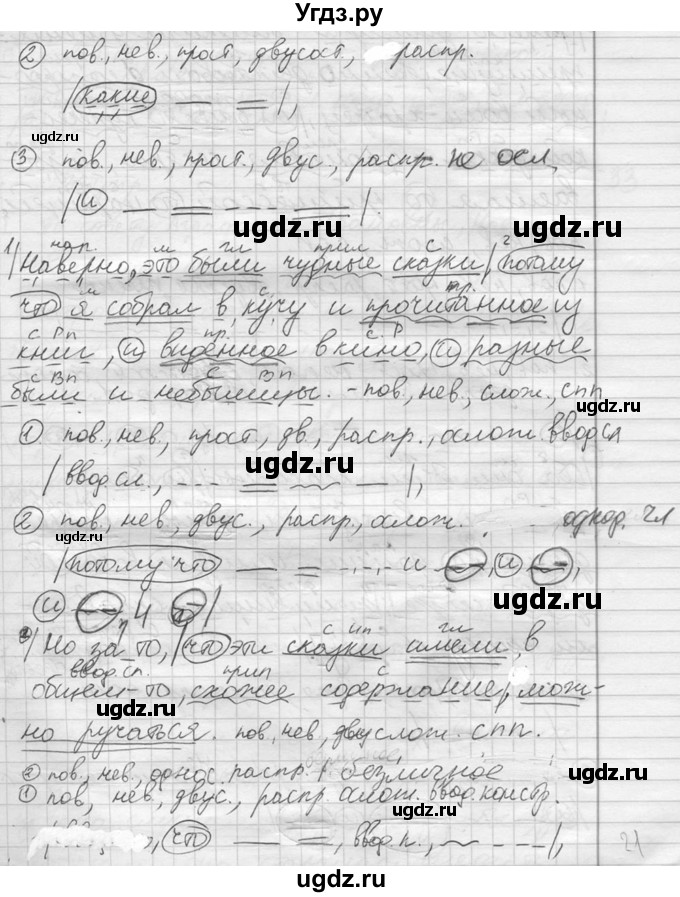 Угдз.ру
② пов., нев., прост, двусост, распр.
/(какие) — =/,
ugdz.ru
③ пов., нев., прост., двус., распр. не осл,
ugdz.ru
/(и) — = --- =/.
ugdz.ru ugdz.ru
1) нар. м гл прил с 2
/Наверно, это были чудные сказки/(потому
что) я собрал в кучу и прочитанное из
с Рп пр. с
книг, (и) виденное в кино, (и) разные
с Вп с Вп
были и небылицы. - пов, нев, слож., спп
① пов., нев., прост, дв., распр., ослож. ввод сл
ugdz.ru ugdz.ru
/ввод. сл., --- = ~ —/,
② пов., нев., двус., распр., ослож. однод. чл
/(потому что) — = -.-. и —, (и) —,
ugdz.ru
(и) —, и —/
ugdz.ru
с ип гл
/Но за то,/(что) эти сказки имели, в
ввод. сл. прил с
общем-то, схожее содержание, мож-
ugdz.ru
но ручаться. пов, нев, двуслож. спп.
② пов., нев., однос. распр., безличное
① пов, нев., двус., распр. ослож. ввод. констр.
ugdz.ru
, (что) — =, ввод. к., ~ ----/,
21
ugdz.ru
ugdz.ru